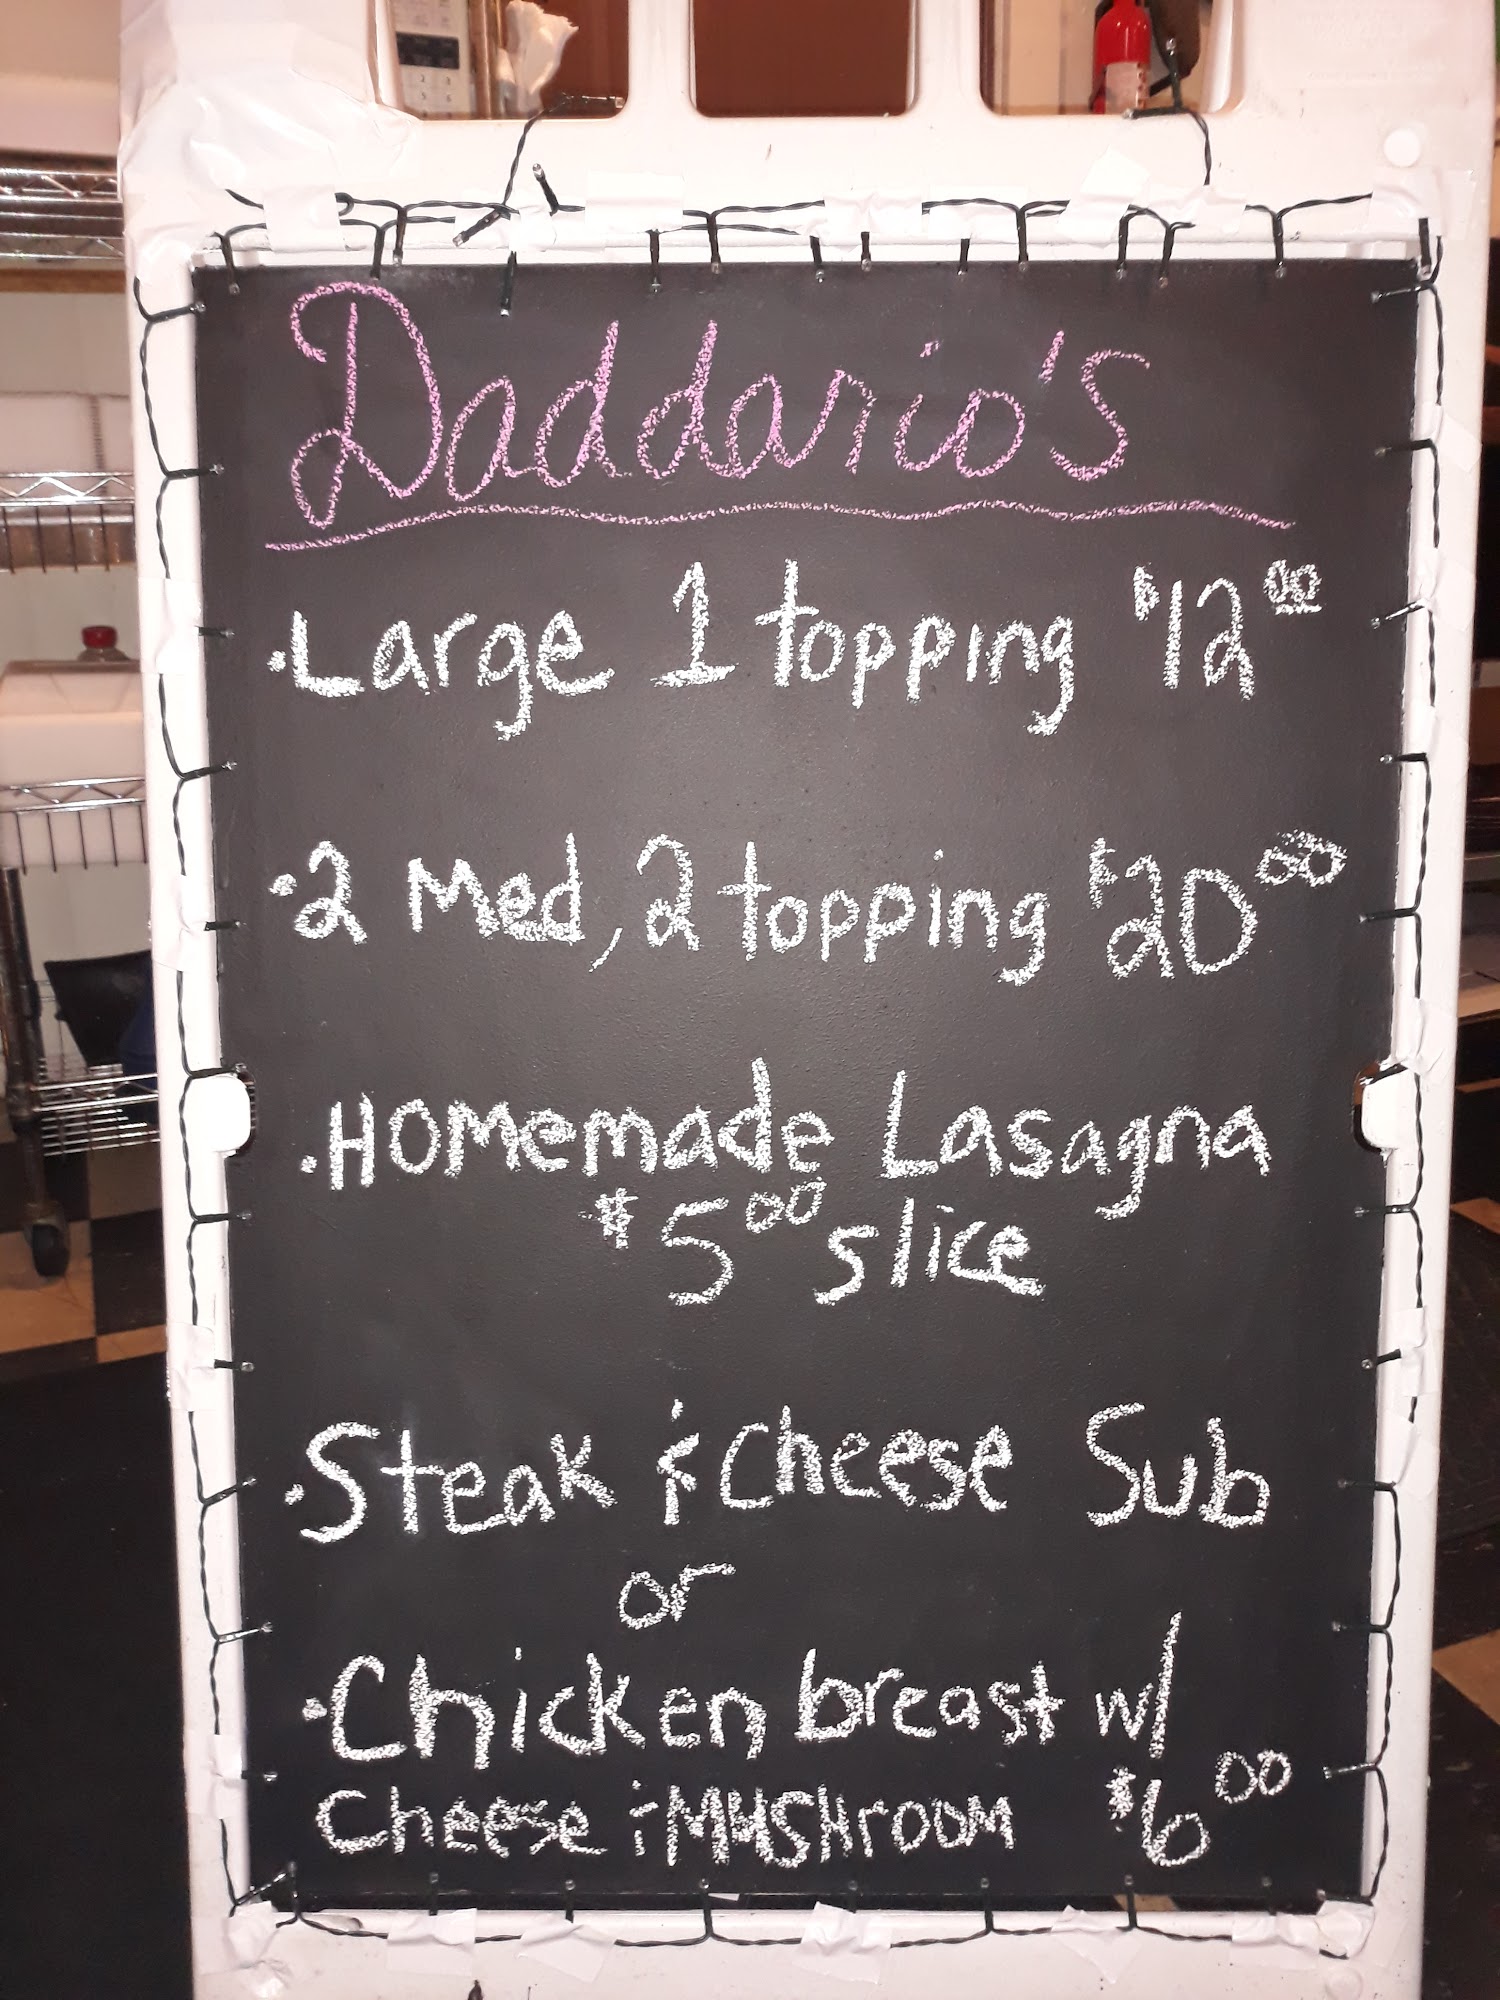 Daddario's
·Large 1 topping $12.00
·2 Med, 2 topping $20.00
·Homemade Lasagna
$5.00 slice
·Steak & Cheese Sub
or
·Chicken breast w/
Cheese & MUSHrOOM $6.00